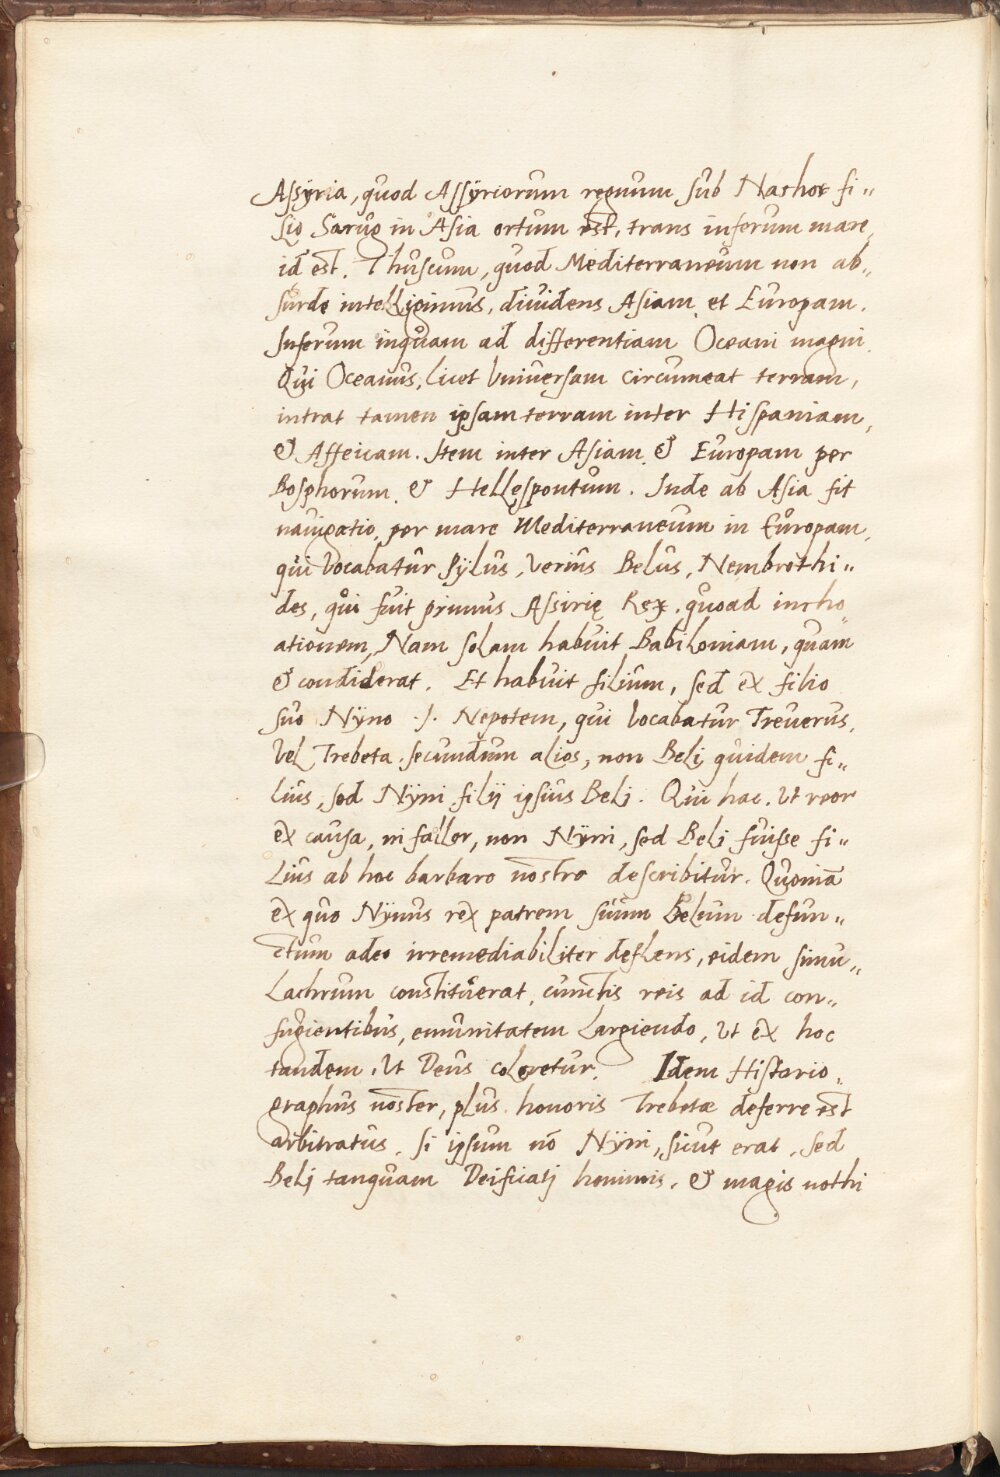 Assÿria, quod Assÿriorum regnum sub Nachor fi„
lio Sarug in Asia ortum est, trans inferum mare,
id est. Thuscum, quod Mediterraneum non ab„
surde intelligimus, diuidens Asiam et Europam.
Inferum inquam ad differentiam Oceani magni.
Qui Oceanus, licet Vniuersam circumeat terram,
intrat tamen ipsam terram inter Hispaniam,
& Affricam. Item inter Asiam & Europam per
Bosphorum & Hellespontum. Inde ab Asia fit
nauigatio, per mare Mediterraneum in Europam,
qui Vocabatur Sÿlus, Verius Belus, Nembrothi„
des, qui fuit primus Assirię Rex. quoad incho„
ationem, Nam solam habuit Babiloniam, quam
& condiderat. Et habuit filium, sed ex filio
suo Nÿno .J. Nepotem, qui Vocabatur Treuerus,
Vel Trebeta. secundum alios, non Belj quidem fi„
lius, sed Nÿni filij ipsius Belj. Qui hac, Vt reor
ex causa, ni fallor, non Nÿni, sed Belj fuisse fi„
lius ab hoc barbaro nostro describitur. Quoniā
ex quo Nÿnus rex patrem suum Belum defun„
ctum adeo irremediabiliter deflens, eidem simu„
lachrum constituerat, cunctis reis ad id con„
fugientibus, emunitatem largiendo, Vt ex hoc
tandem, Vt Deus coleretur. Idem Historio„
graphus noster, plus honoris Trebetæ deferre est
arbitratus, si ipsum nō Nÿni, sicut erat, sed
Belj tanquam Deificatj hominis, & magis nothi